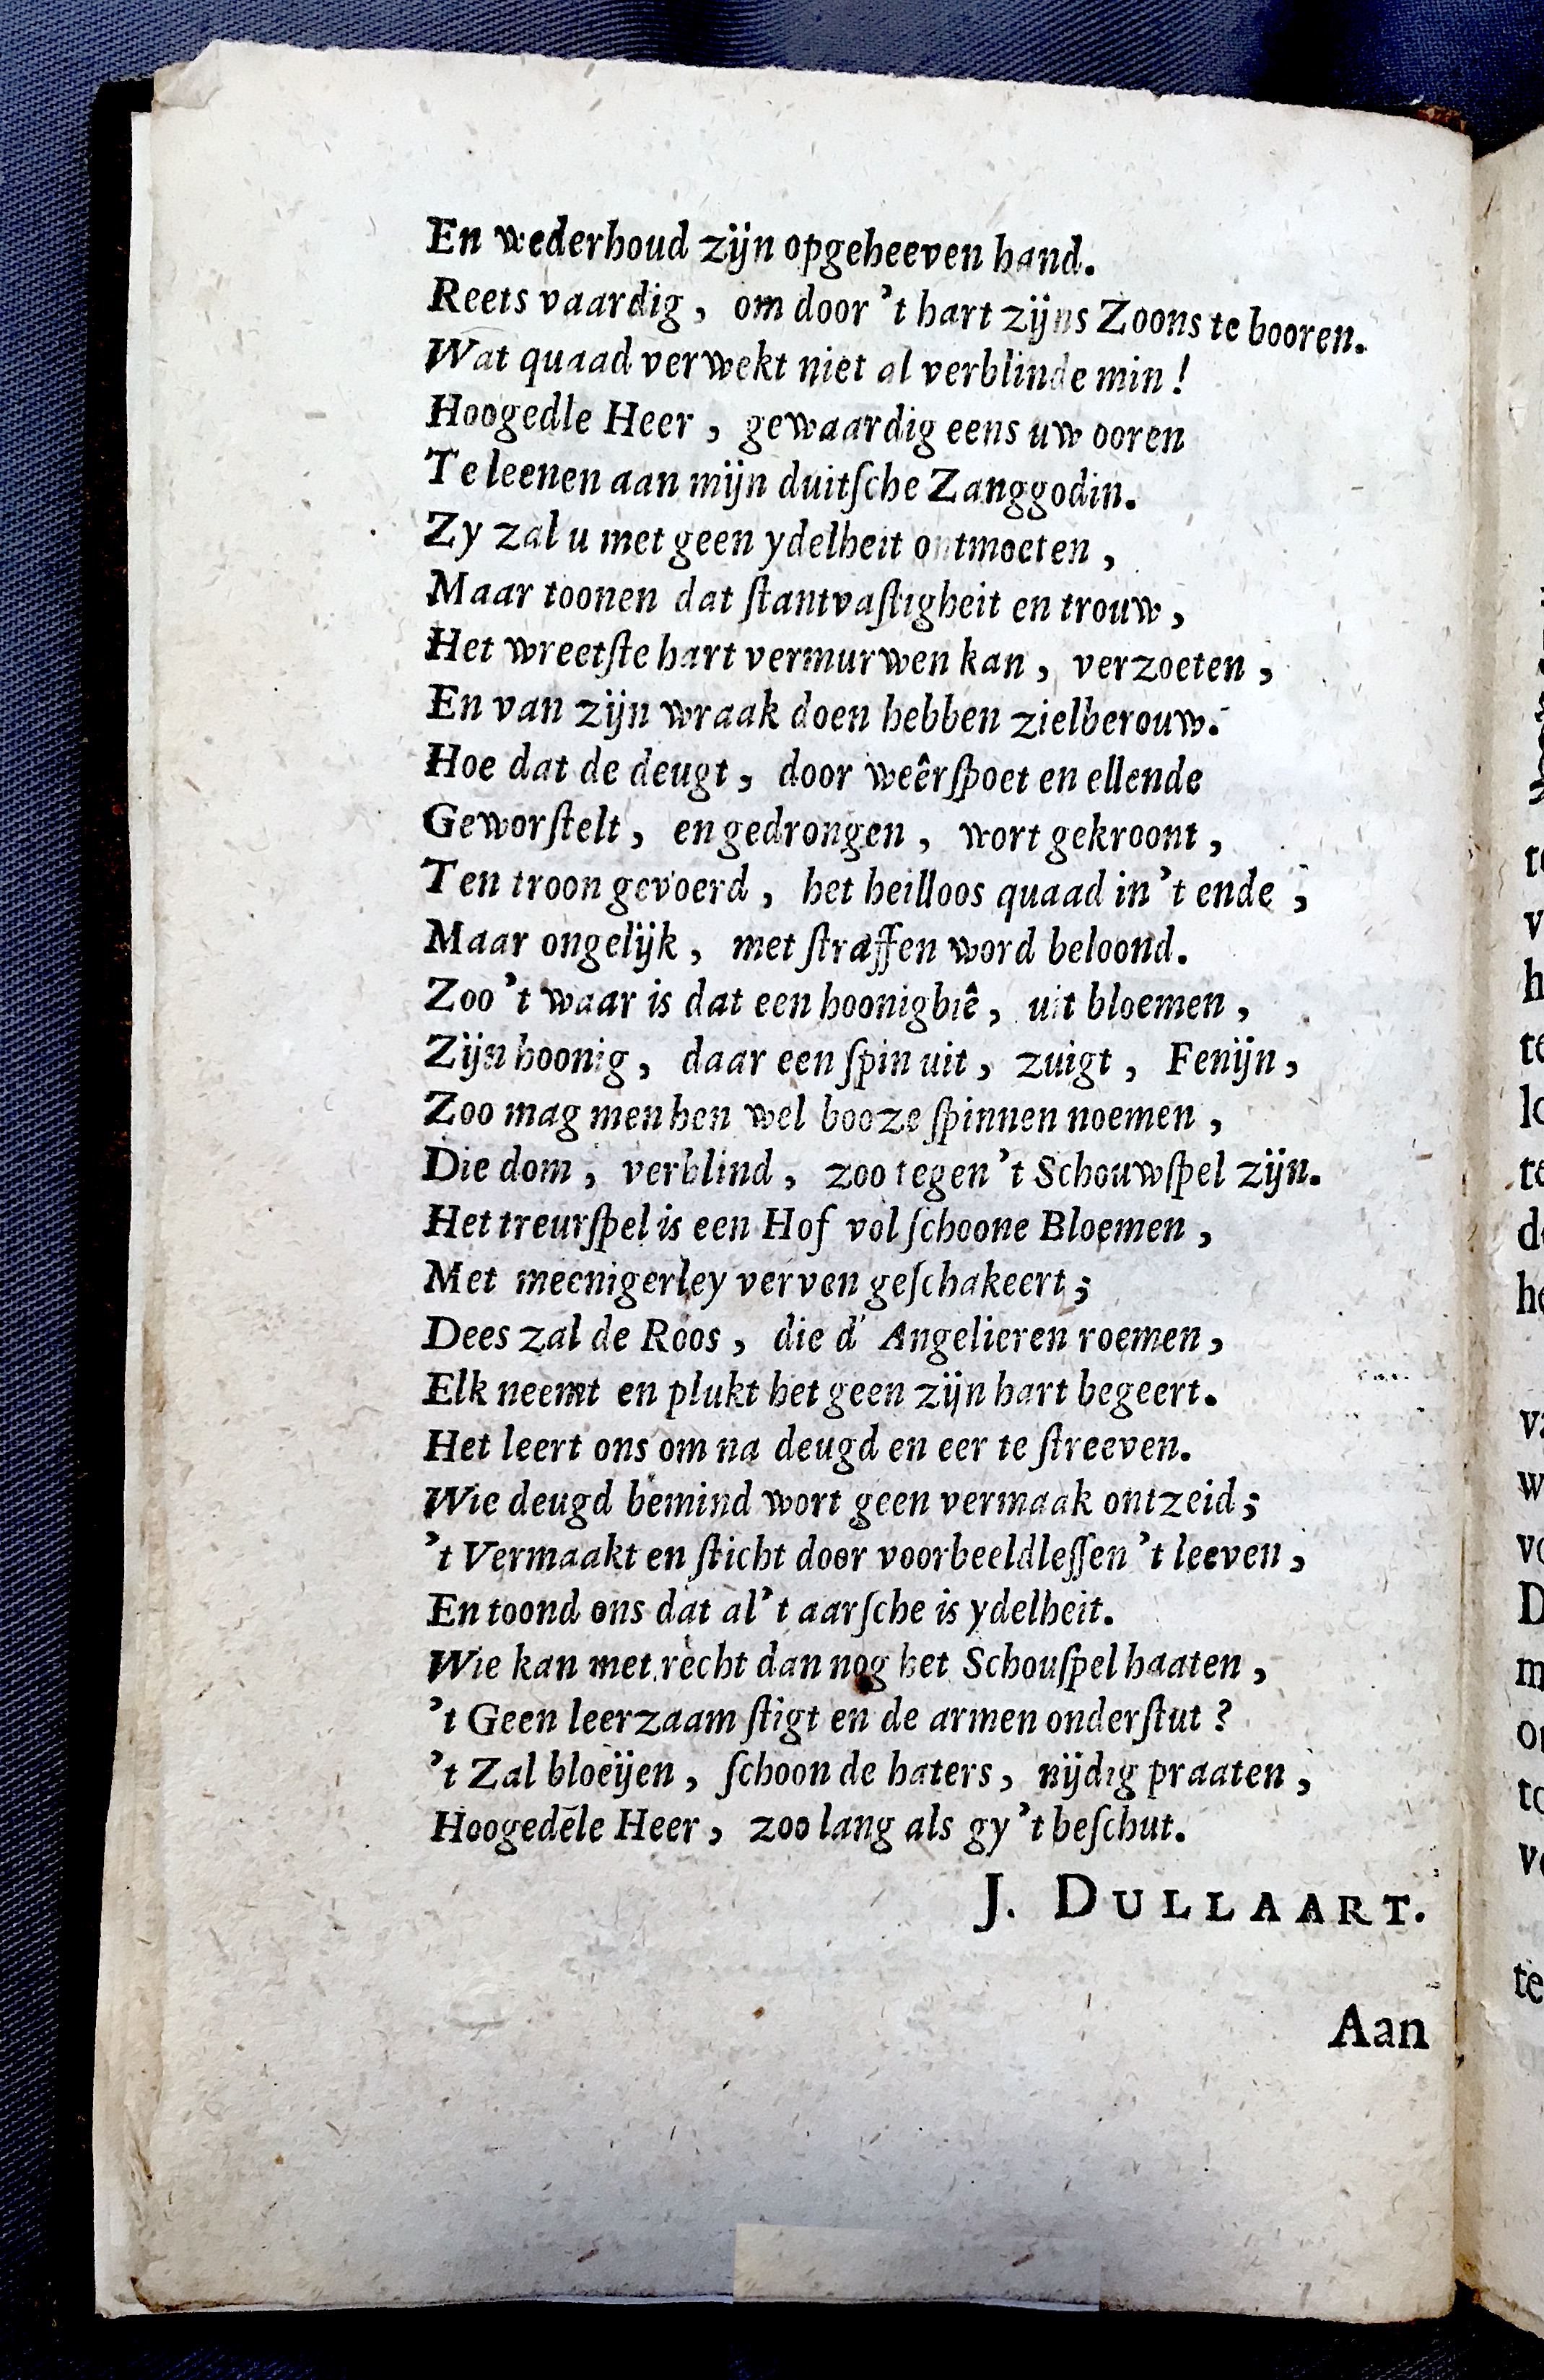 En wederhoud zijn opgeheeven hand.
Reets vaardig, om door 't hart zijns Zoons te booren.
Wat quaad verwekt niet al verblinde min!
Hoogedle Heer, gewaardig eens uw ooren
Te leenen aan mijn duitſche Zanggodin.
Zy zal u met geen ydelheit ontmoeten,
Maar toonen dat ſtantvaſtigheit en trouw,
Het wreetſte hart vermurwen kan, verzoeten,
En van zijn wraak doen hebben zielberouw.
Hoe dat de deugt, door weêrſpoet en ellende
Geworſtelt, en gedrongen, wort gekroont,
Ten troon gevoerd, het heilloos quaad in 't ende,
Maar ongelijk, met ſtraffen word beloond.
Zoo 't waar is dat een hoonigbiê, uit bloemen,
Zijn hoonig, daar een ſpin uit, zuigt, Fenijn,
Zoo mag men hen wel booze ſpinnen noemen,
Die dom, verblind, zoo tegen 't Schouwſpel zijn.
Het treurſpel is een Hof vol ſchoone Bloemen,
Met meenigerley verven geſchakeert;
Dees zal de Roos, die d' Angelieren roemen,
Elk neemt en plukt het geen zijn hart begeert.
Het leert ons om na deugd en eer te ſtreeven.
Wie deugd bemind wort geen vermaak ontzeid;
't Vermaakt en ſticht door voorbeeldleſſen 't leeven,
En toond ons dat al 't aarſche is ydelheit.
Wie kan met recht dan nog het Schouſpel haaten,
't Geen leerzaam ſtigt en de armen onderſtut?
't Zal bloeijen, ſchoon de haters, nijdig praaten,
Hoogedele Heer, zoo lang als gy 't beſchut.
J. DULLAART.
Aan